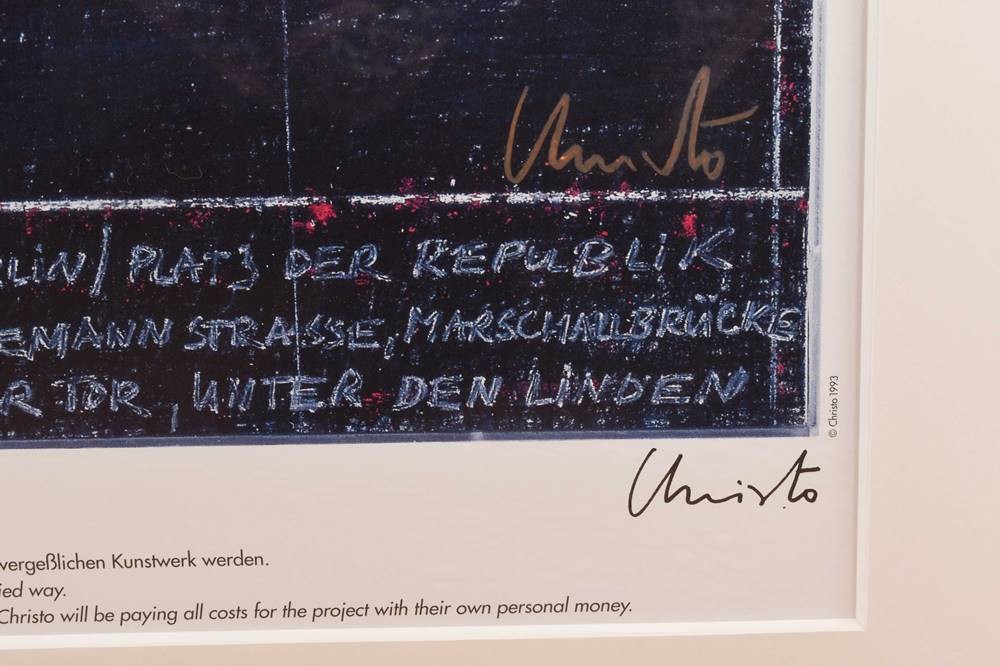 Christo
LIN/ PLATZ DER REPUBLIK
EMANN STRASSE, MARSCHALLBRÜCKE
R TOR, UNTER DEN LINDEN
© Christo 1993
Christo
vergeßlichen Kunstwerk werden.
ied way.
Christo will be paying all costs for the project with their own personal money.